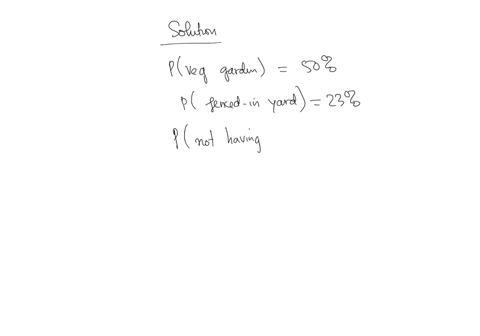 Solution
P(veg garden) = 50%
P(fenced-in yard) = 23%
P(not having